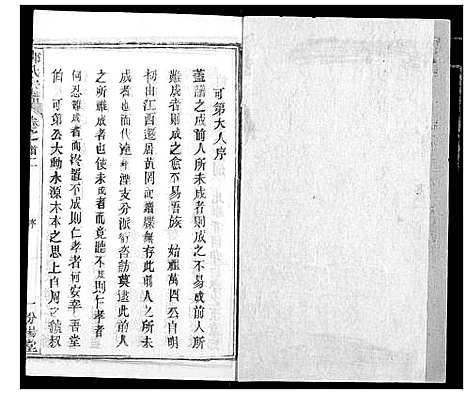 可第大人序
蓋譜之成前人所未成者則成之不易成前人所
難成者則成之愈不易吾族 始祖萬四公自明
初由江西遷居黃岡 譜牒無存此前人之所未
成者也而代遠 湮支分派衍咨訪莫逮此前人
之所難成者 而竟聽不 則仁孝者
何忍難成者而終置不成則仁孝者何安幸吾堂
伯 可第公大動水源木本之思上自周之虢叔
氏宗譜 卷之首二 序 一 汾陽堂